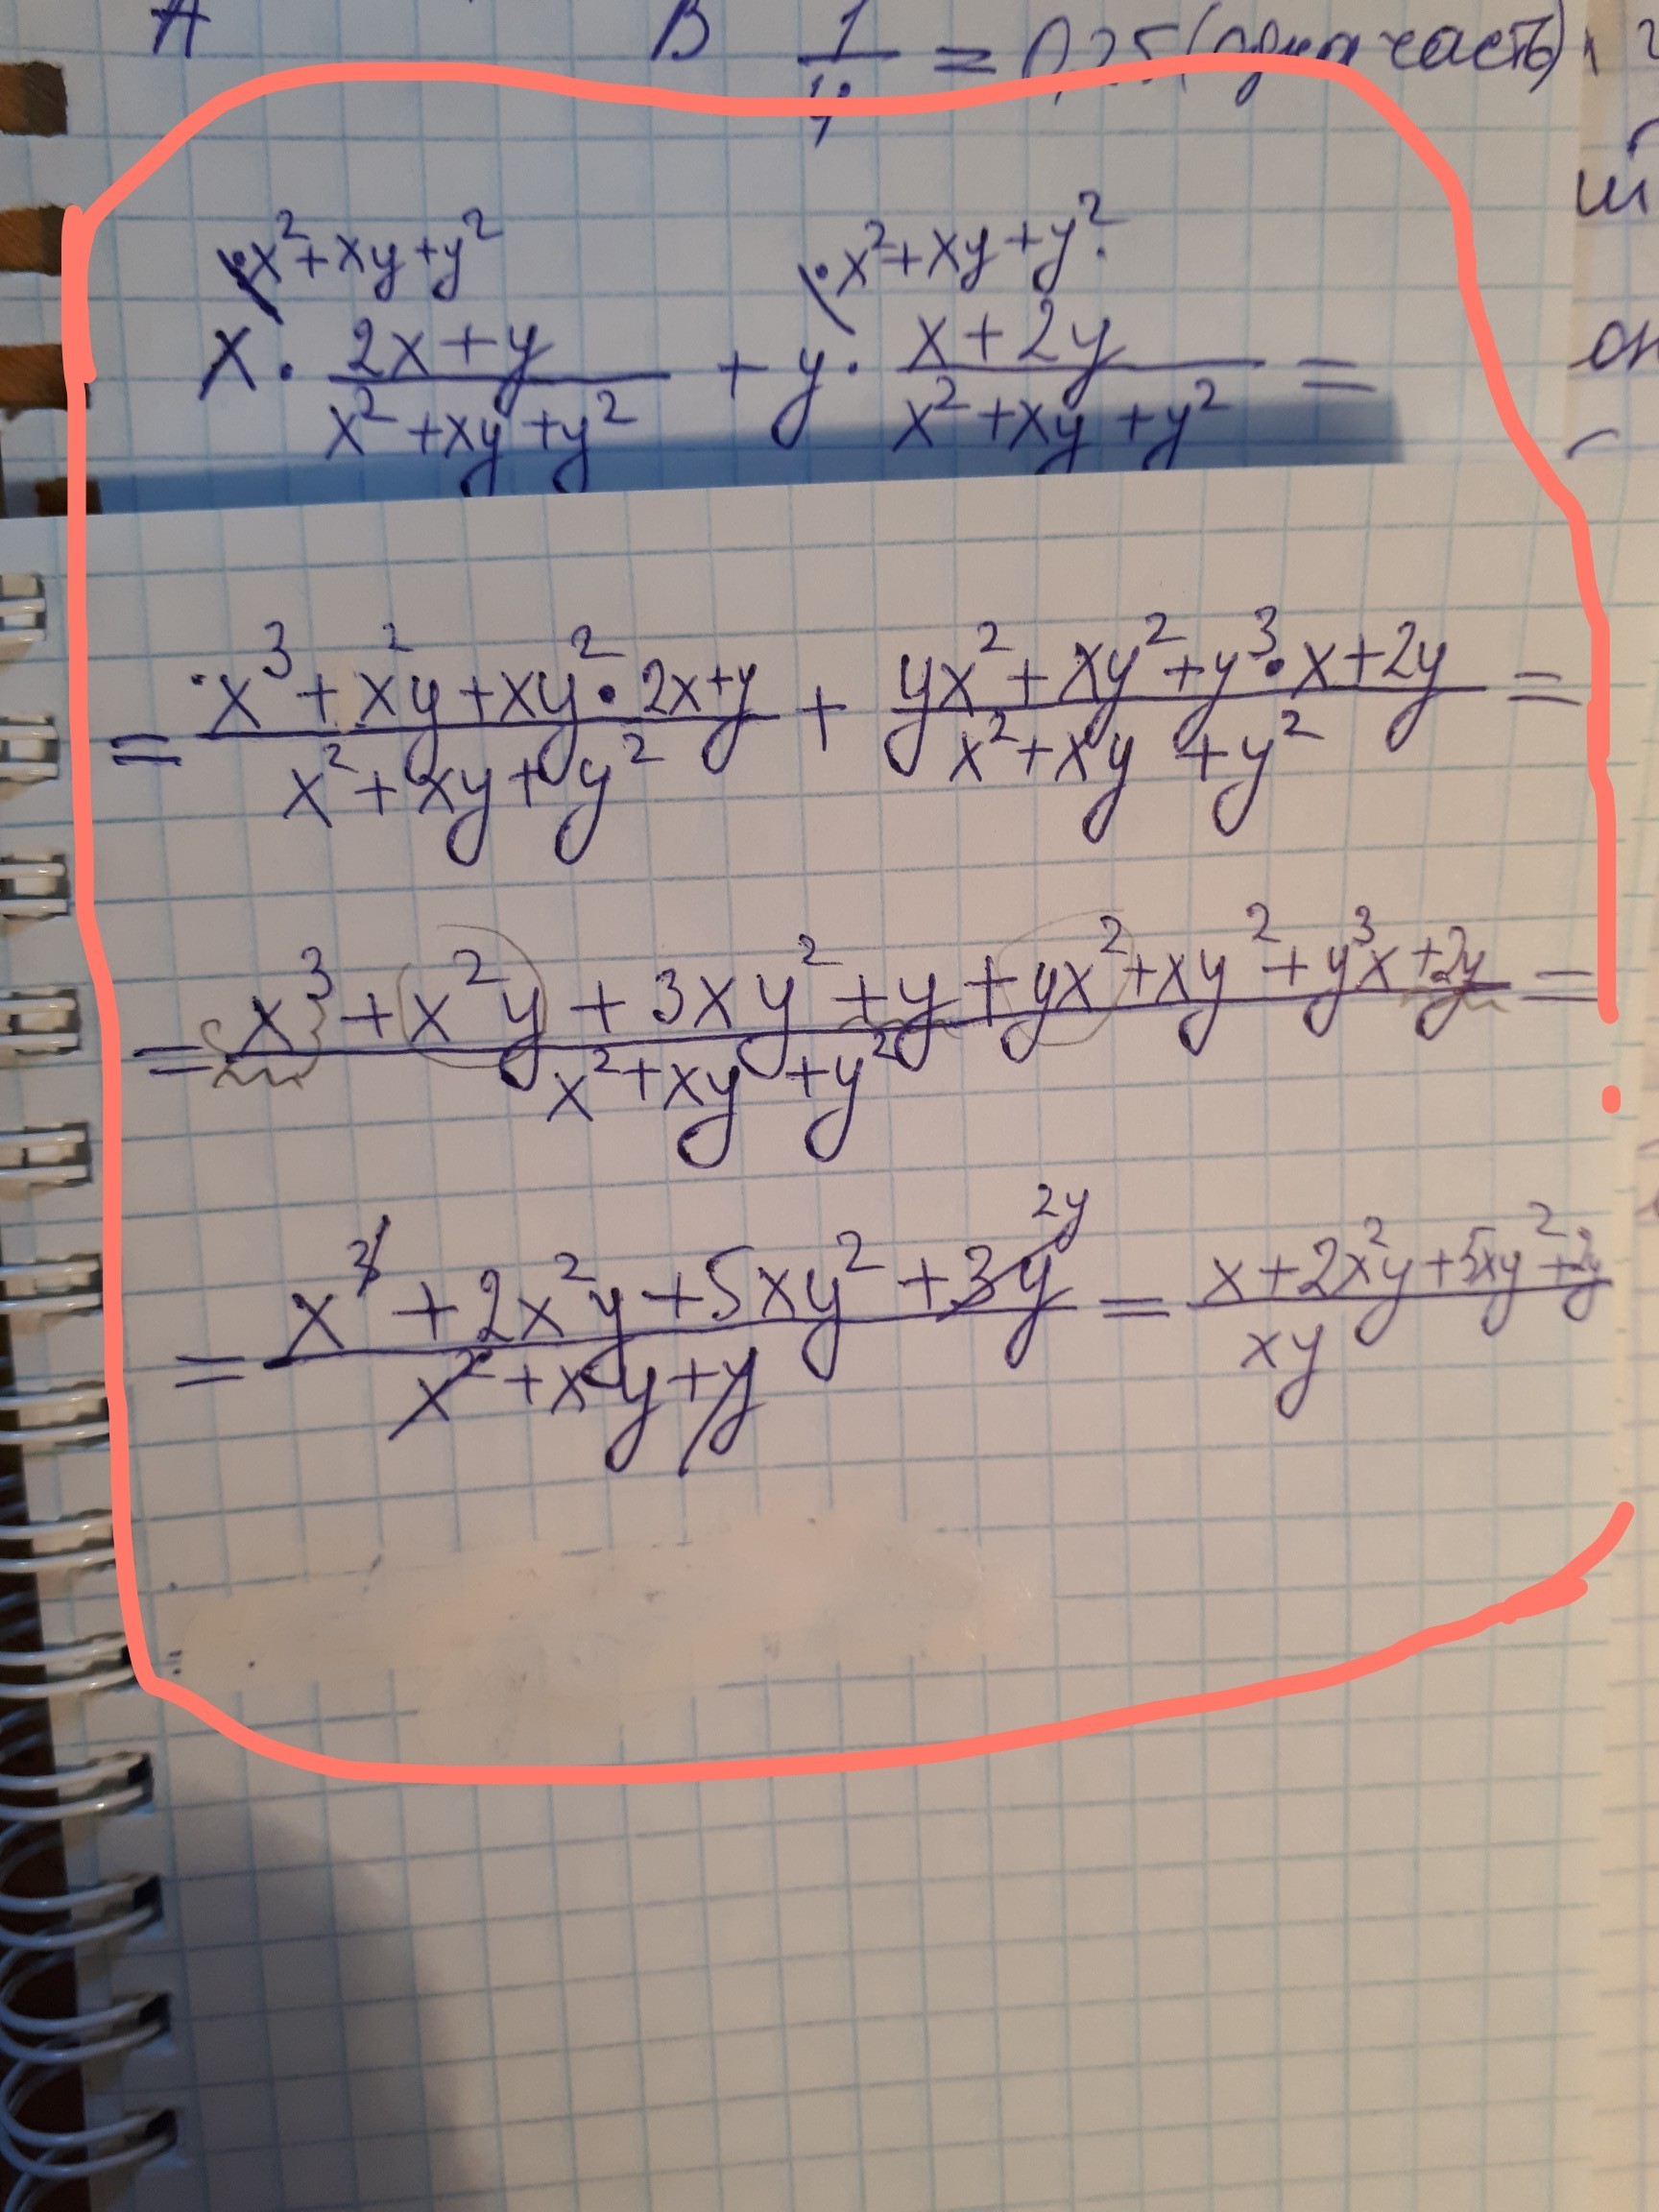 A B 1/4 = 0,25 (одна часть)
·x²+xy+y² ·x²+xy+y²
x · (2x+y)/(x²+xy+y²) + y · (x+2y)/(x²+xy+y²) =
= (x³+x²y+xy²·2x+y)/(x²+xy+y²) + (yx²+xy²+y³·x+2y)/(x²+xy+y²) =
= (x³+x²y+3xy²+y+yx²+xy²+y³x+2y)/(x²+xy+y²) =
2y
= (x³+2x²y+5xy²+3y)/(x²+xy+y) = (x+2x²y+5xy²+2y)/(xy)